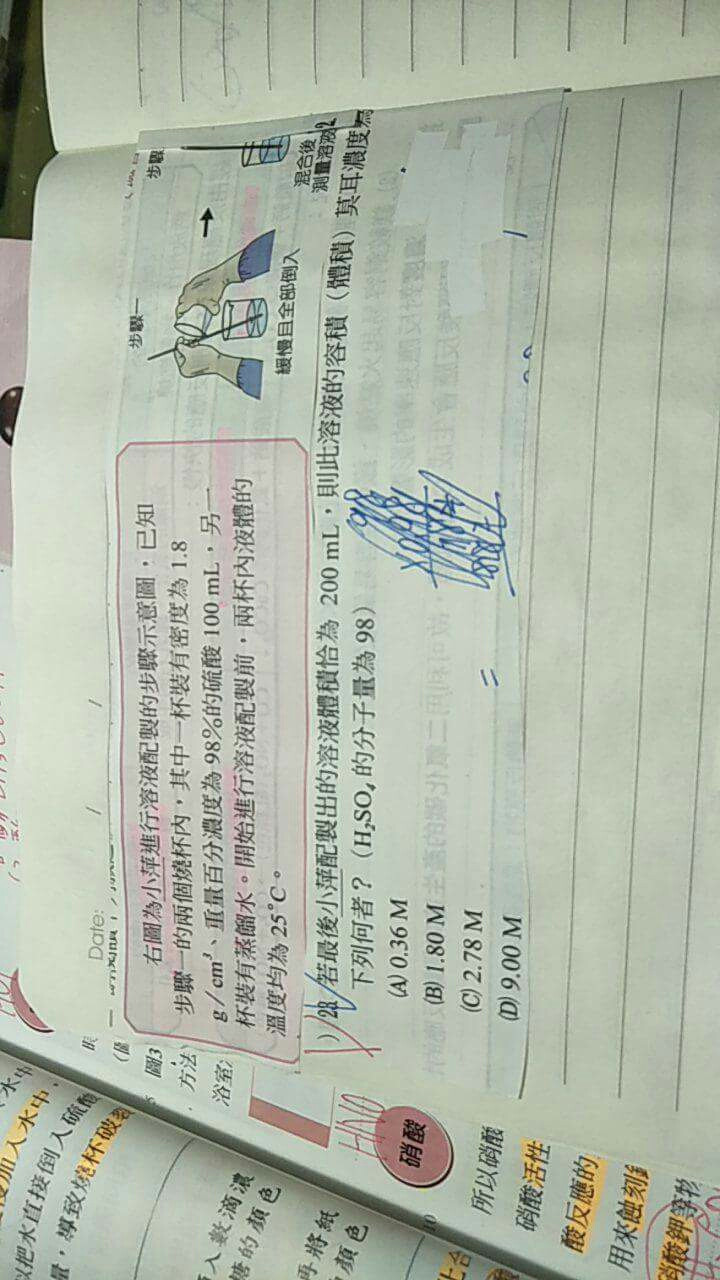 Date:
右圖為小萍進行溶液配製的步驟示意圖，已知
步驟一的兩個燒杯內，其中一杯裝有密度為 1.8
g／cm³、重量百分濃度為 98%的硫酸 100 mL，另一
杯裝有蒸餾水。開始進行溶液配製前，兩杯內液體的
溫度均為 25°C。
步驟一
緩慢且全部倒入
步驟
混合後
測量溶液
) 23. 若最後小萍配製出的溶液體積恰為 200 mL，則此溶液的容積（體積）莫耳濃度為
下列何者？（H₂SO₄ 的分子量為 98）
(A) 0.36 M
(B) 1.80 M
(C) 2.78 M
(D) 9.00 M
=
圖3
方法
浴室
硝酸
所以硝酸
硝酸活性
酸反應的
用來蝕刻
加入水中，
把水直接倒入硫酸
量，導致燒杯破裂
入數滴濃
糖的顏色
再將紙
顏色